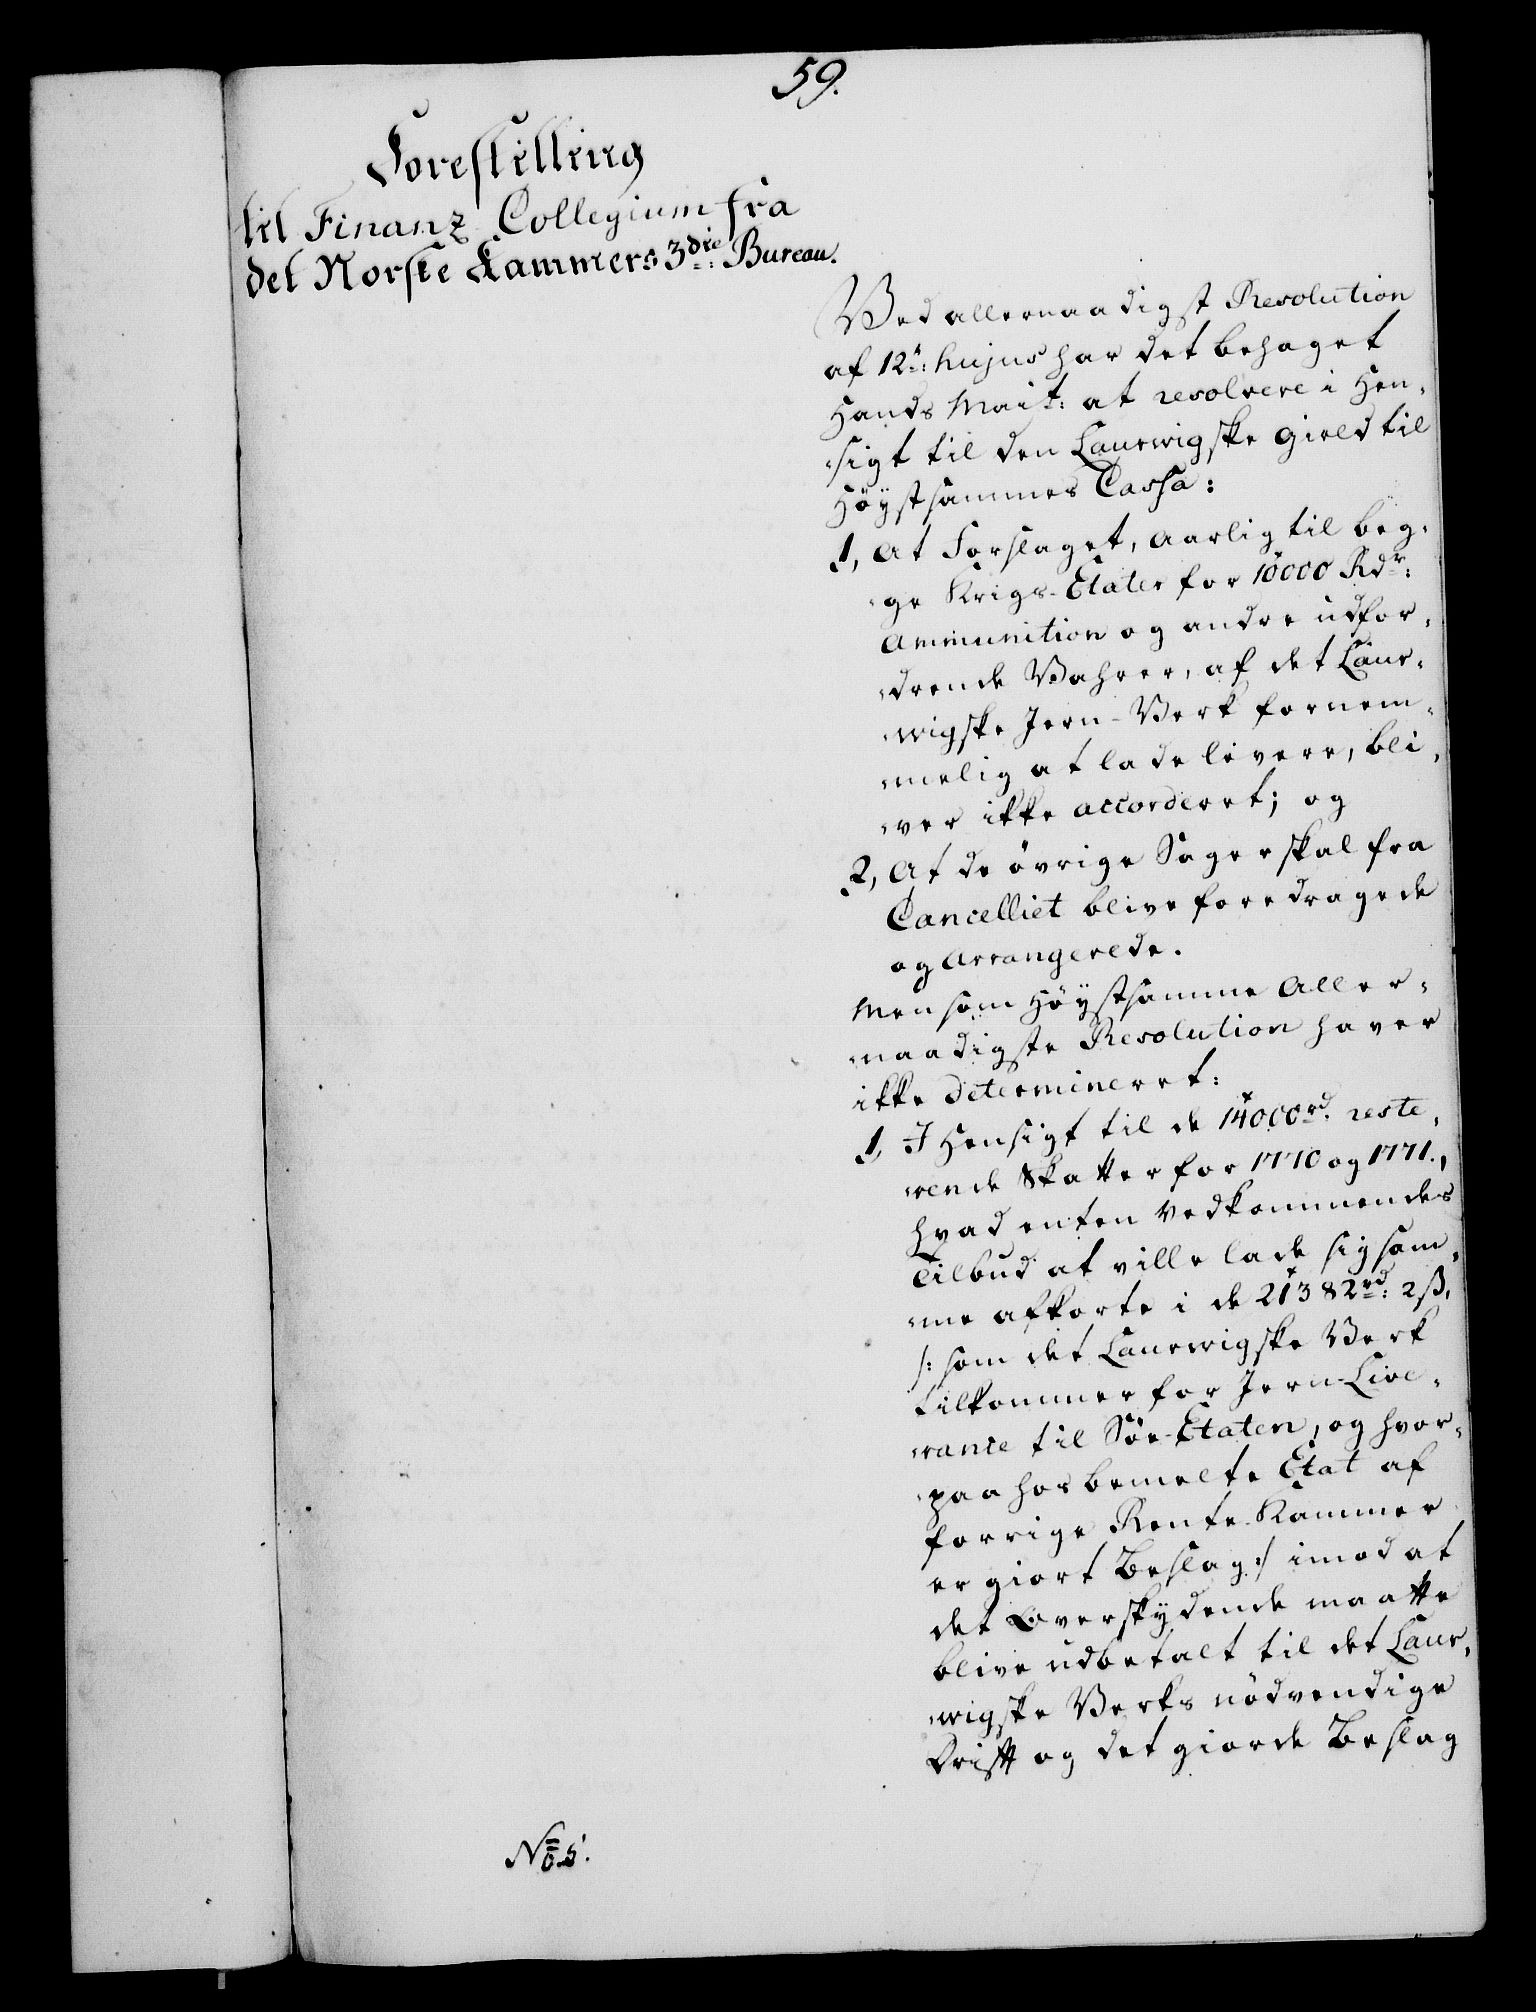 59.
Forestilling
til Finanz Collegium fra
det Norske Kammers 3die: Bureau.
Ved allernaadigst Resolution
af 12te: hujus har det behaget
Hands Mait: at resolvere i Hen-
sigt til den Laurwigske Gield til
Höystsammes Cassa:
1, At Forslaget, aarlig til beg-
ge Krigs-Etater for 10000 Rdr:
Ammunition og andre udfor-
drende Vahrer, af det Laur-
wigske Jern-Verk fornem-
melig at lade levere, bli-
ver ikke accorderet; og
2, At de övrige Sager skal fra
Cancelliet blive foredragede
og arrangerede.
Men som Höystsamme Aller-
naadigste Resolution haver
ikke determineret:
1, I Hensigt til de 14000rd. reste-
rende Skatter for 1770 og 1771.,
hvad enten Vedkommendes
Tilbud at ville lade sig sam-
me afkorte i de 21382rd: 2ß,
/: som det Laurwigske Verk
tilkommer for Jern-Live-
rance til Söe-Etaten, og hvor-
paa hos bemelte Etat af
forrige Rente-Kammer
er giort Beslag :/ imod at
det Overskydende maatte
blive udbetalt til det Laur-
wigske Verks nödvendige
Drift og det giorde Beslag
No 5.